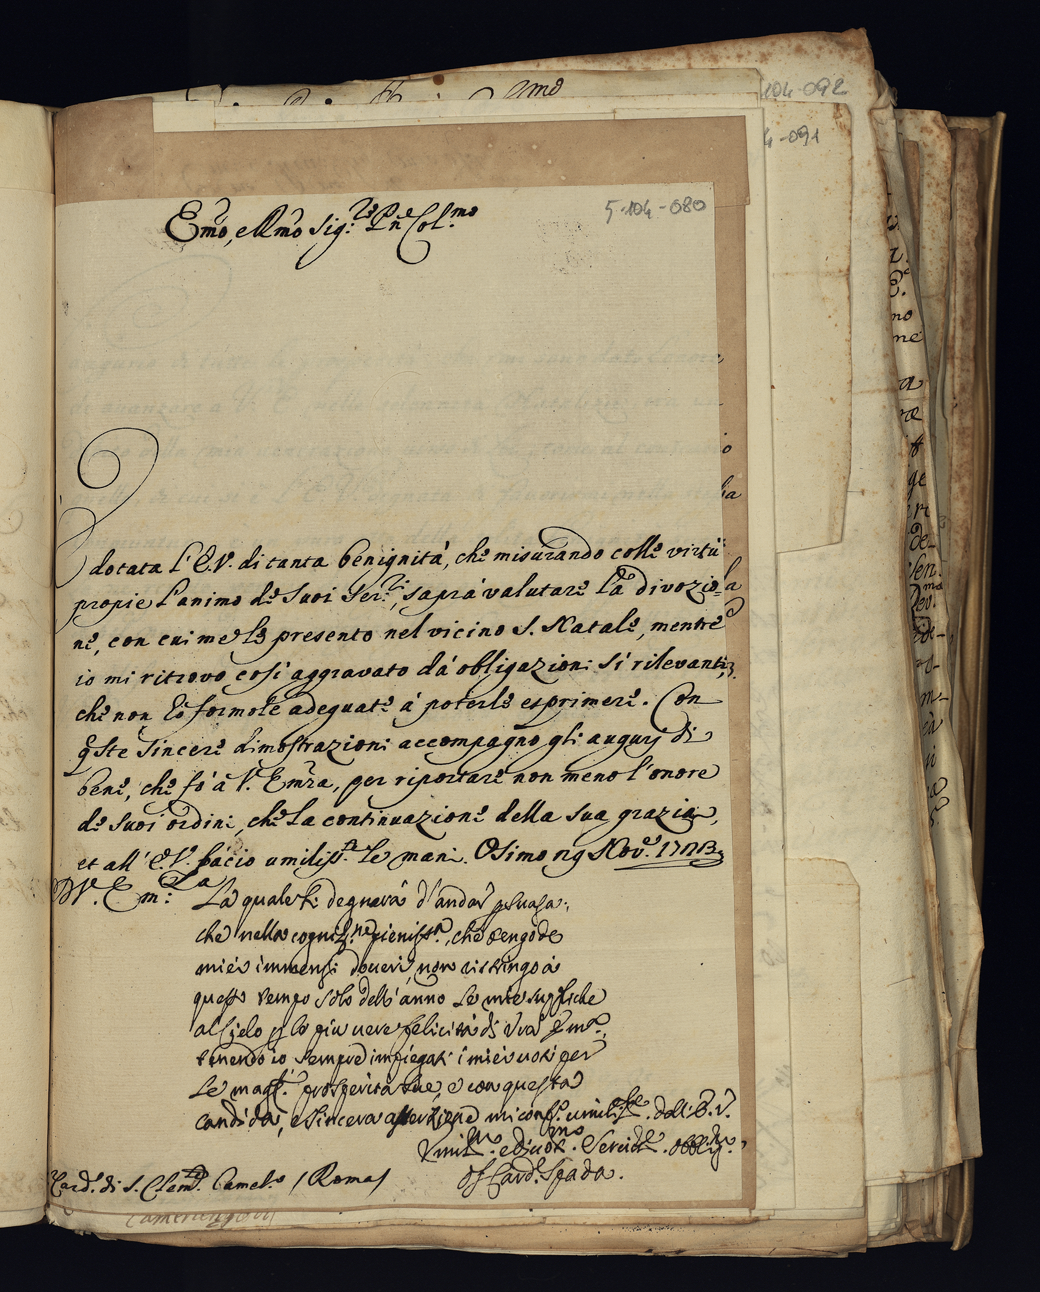 5·104-080
Em̃o, e Rm̃o Sig.re Pñe Col.mo
dotata l'E.V. di tanta benignità, che misurando colle virtù
proprie l'animo de Suoi Ser.ri, saprà valutare la divozio-
ne, con cui me le presento nel vicino S. Natale, mentre
io mi ritrovo così aggravato dà obligazioni sì rilevanti,
che non hò formole adeguate à poterle esprimere. Con
q̃ste sincere dimostrazioni accompagno gli augurj di
bene, che fò à V. Em̃za, per riportare non meno l'onore
de suoi ordini, che la continuazione della sua grazia,
et all'E.V. bacio umiliss.te le mani. Osimo, Nov.
D V. Em.za La quale si degnerà d'andar p̱suasa,
che nella cogniz.ne pieniss.a, che tengo de
miei immensi doveri, non ristringo à
questo tempo solo dell'anno le mie suppliche
al Cielo p̱ le più vere felicità di Vra Em.a,
tenendo io sempre impiegati i miei voti per
le mag.ri prosperità sue, e con questa
candida, e sincera asserzione mi conf.o umiliss.te dell'E.V.
Umil.mo e divot.mo Servid.e obblig.
Card. Spada.
Card. di S. Clem.te Camel.o / Roma /
104-092
4-091